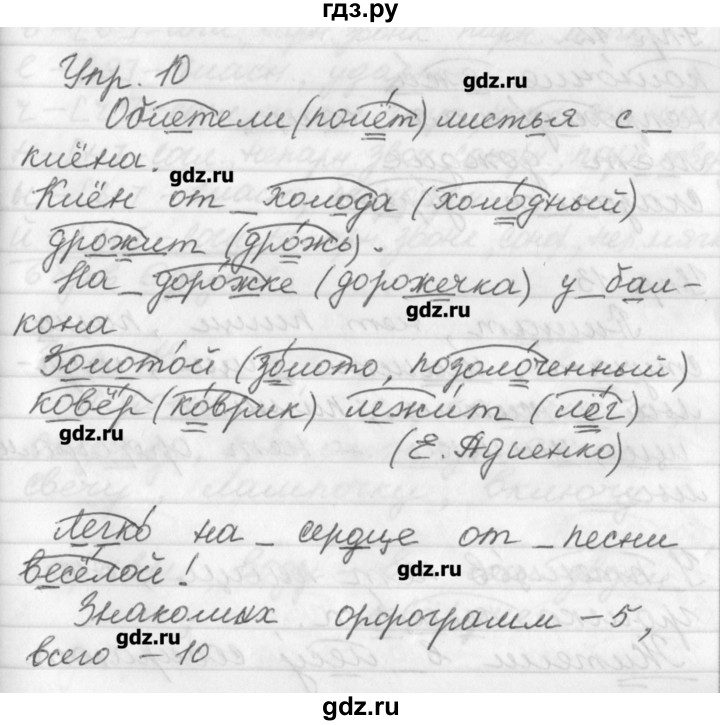 гдз.ру
Упр. 10
gdz.ru
Облетели (полёт) листья с _
клёна.
gdz.ru
Клён от _ холода (холодный)
дрожит (дрожь).
На _ дорожке (дорожечка) у _ бал-
gdz.ru
кона
Золотой (золото, позолоченный)
ковёр (коврик) лежит (лёг)
gdz.ru
(Е. Адиенко)
Легко на _ сердце от _ песни
весёлой!
gdz.ru
Знакомых орфограмм – 5,
gdz.ru
всего – 10